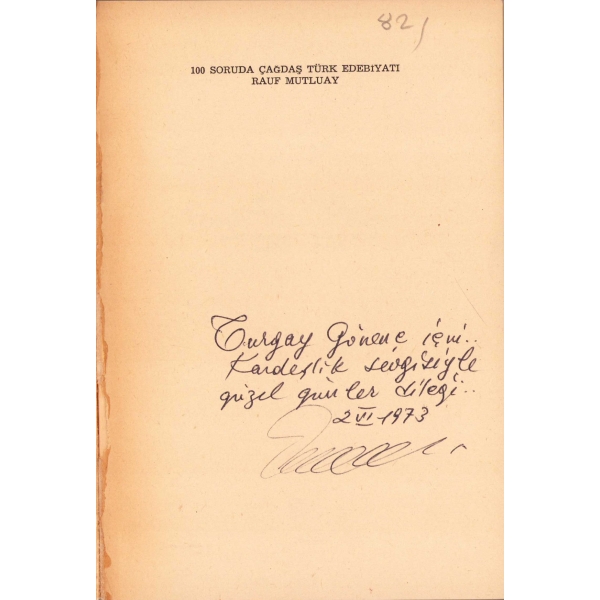 82/
100 SORUDA ÇAĞDAŞ TÜRK EDEBİYATI
RAUF MUTLUAY
Turgay Gönenc için..
Kardeşlik sevgisiyle
güzel günler dileği..
2 VI 1973